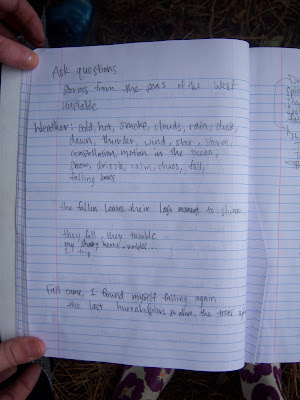 Ask questions
Storms from the fens of the West
Unstable
Weather: Cold, hot, smoke, clouds, rain, dusk,
dawn, thunder, wind, star, storm,
constellation, motion in the ocean,
snow, drizzle, calm, chaos, fall,
falling leaves
the fallin leaves their last moment to shine
they fall, they tumble
my
trip
Fall came I found myself falling again
the last hurrah the trees